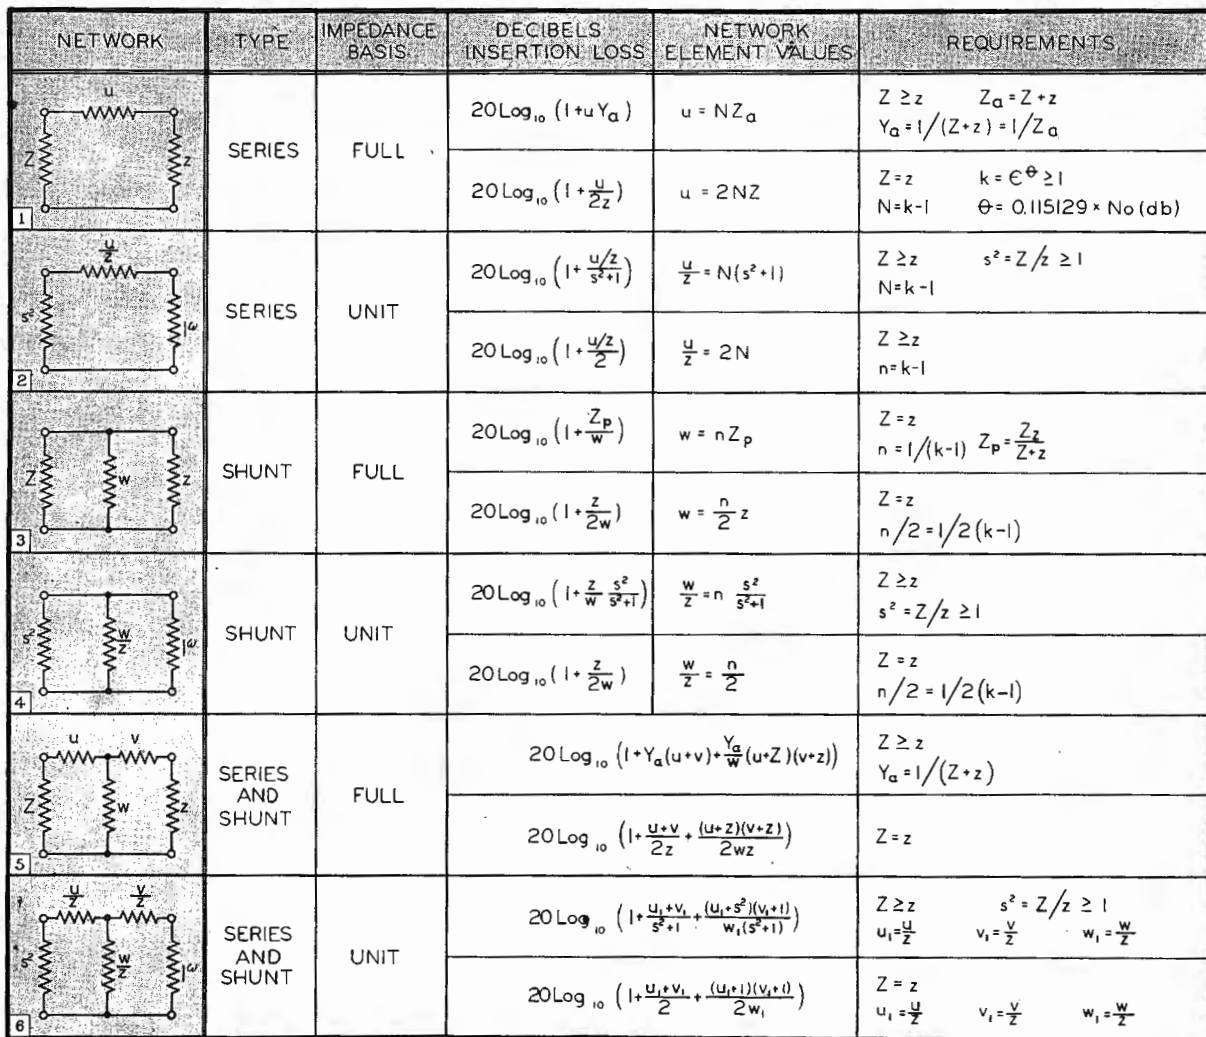 NETWORK TYPE IMPEDANCE BASIS DECIBELS INSERTION LOSS NETWORK ELEMENT VALUES REQUIREMENTS
u
Z z
1
SERIES FULL
20 Log₁₀ (1+uYₐ) u = NZₐ Z ≥ z Zₐ = Z+z
Yₐ = 1/(Z+z) = 1/Zₐ
20 Log₁₀ (1+u/2z) u = 2NZ Z = z k = ϵ^θ ≥ 1
N = k-1 θ = 0.115129 × No (db)
u/z
s² 1ω
2
SERIES UNIT
20 Log₁₀ (1+(u/z)/(s²+1)) u/z = N(s²+1) Z ≥ z s² = Z/z ≥ 1
N = k-1
20 Log₁₀ (1+(u/z)/2) u/z = 2N Z ≥ z
n = k-1
Z w z
3
SHUNT FULL
20 Log₁₀ (1+Zₚ/w) w = nZₚ Z = z
n = 1/(k-1) Zₚ = Zz/(Z+z)
20 Log₁₀ (1+z/2w) w = n/2 z Z = z
n/2 = 1/2(k-1)
s² w/z 1ω
4
SHUNT UNIT
20 Log₁₀ (1+z/w s²/(s²+1)) w/z = n s²/(s²+1) Z ≥ z
s² = Z/z ≥ 1
20 Log₁₀ (1+z/2w) w/z = n/2 Z = z
n/2 = 1/2(k-1)
u v
Z w z
5
SERIES AND SHUNT FULL
20 Log₁₀ (1+Yₐ(u+v)+Yₐ/w(u+Z)(v+z)) Z ≥ z
Yₐ = 1/(Z+z)
20 Log₁₀ (1+(u+v)/2z+(u+z)(v+z)/2wz) Z = z
u/z v/z
s² w/z 1ω
6
SERIES AND SHUNT UNIT
20 Log₁₀ (1+(u₁+v₁)/(s²+1)+(u₁+s²)(v₁+1)/w₁(s²+1)) Z ≥ z s² = Z/z ≥ 1
u₁ = u/z v₁ = v/z w₁ = w/z
20 Log₁₀ (1+(u₁+v₁)/2+(u₁+1)(v₁+1)/2w₁) Z = z
u₁ = u/z v₁ = v/z w₁ = w/z